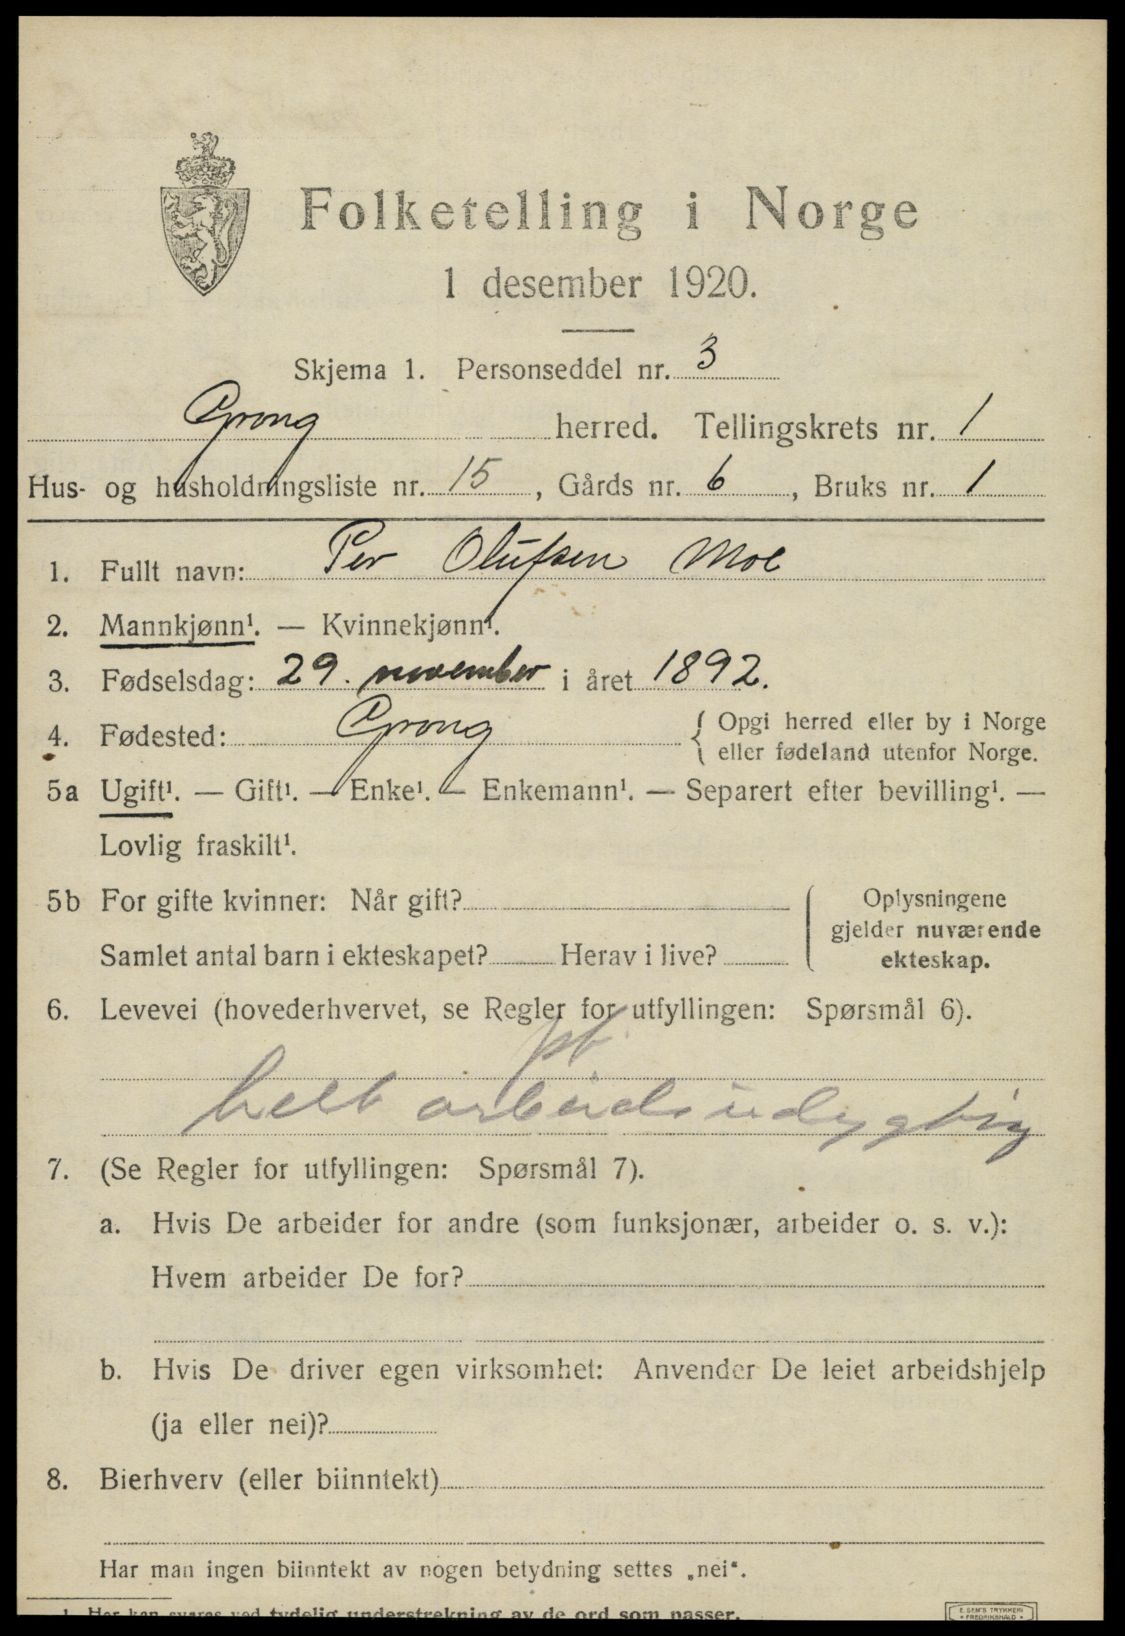 Folketelling i Norge
1 desember 1920.
Skjema 1. Personseddel nr. 3
Grong herred. Tellingskrets nr. 1
Hus- og husholdningsliste nr. 15, Gårds nr. 6, Bruks nr. 1
1. Fullt navn: Per Olufsen Moe
2. Mannkjønn¹. — Kvinnekjønn¹.
3. Fødselsdag: 29. november i året 1892.
4. Fødested: Grong { Opgi herred eller by i Norge
eller fødeland utenfor Norge.
5a Ugift¹. — Gift¹. — Enke¹. — Enkemann¹. — Separert efter bevilling¹. —
Lovlig fraskilt¹.
5b For gifte kvinner: Når gift?
Samlet antal barn i ekteskapet? Herav i live?
Oplysningene
gjelder nuværende
ekteskap.
6. Levevei (hovederhvervet, se Regler for utfyllingen: Spørsmål 6).
pt.
helt arbeidsudygtig
7. (Se Regler for utfyllingen: Spørsmål 7).
a. Hvis De arbeider for andre (som funksjonær, arbeider o. s. v.):
Hvem arbeider De for?
b. Hvis De driver egen virksomhet: Anvender De leiet arbeidshjelp
(ja eller nei)?
8. Bierhverv (eller biinntekt)
Har man ingen biinntekt av nogen betydning settes „nei“.
1. Her kan svares ved tydelig understrekning av de ord som passer.
E. SEM'S TRYKKERI
FREDRIKSHALD